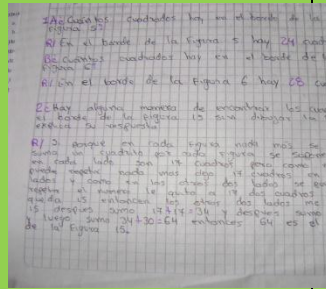 1A¿Cuántos cuadrados hay en el borde de la
figura 5?
R/ En el borde de la Figura 5 hay 24 cuad
B¿Cuántos cuadrados hay en el borde de
Figura 6?
R/ En el borde de la Figura 6 hay 28 cu
2¿Hay alguna manera de encontrar los cua
el borde de la figura 15 sin dibujar la
explica su respuesta
R/ Si porque en cada figura nada mas se
suma un cuadro por cada figura se
en cada lado son 17 cuadros pero como
puede repetir nada mas dejo 17 cuadros en
lados y como en los otros dos lados se
repetir el numero le quito a 17 dos cuadros
queda 15 entonces los otros dos lados me
15 despues sumo 17+17=34 y despues sumo
y luego sumo 34+30=64 entonces 64 es el
de la Figura 15.